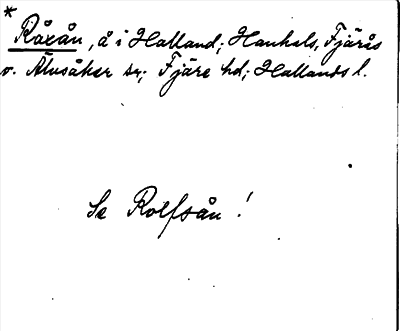 * Råxån, å i Halland; Hanhals, Fjärås
o. Älvsåker sn; Fjäre hd; Hallands l.
Se Rolfsån!